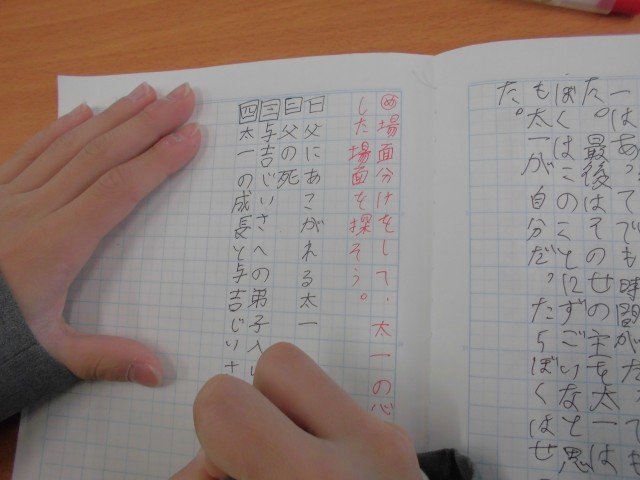 た。最後はそのせの主を太一は
ぼくはこのことにずごいなと思
も太一が自分だったらぼくはせ
た。
め 場面分けをして、太一の心
した場面を探そう。
一 父にあこがれる太一
二 父の死
三 与吉じいさへの弟子入り
四 太一の成長と与吉じいさ